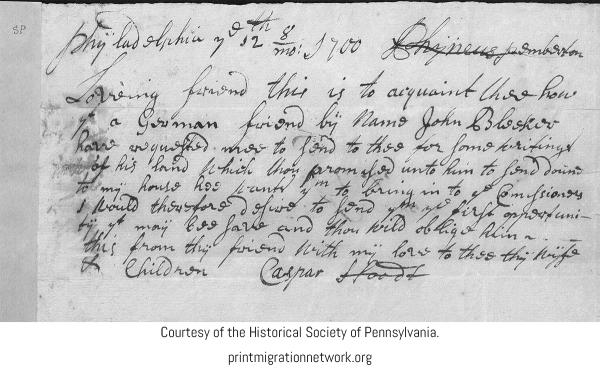 SP
Phyladelphia yᵉ 12th 8 mo: 1700 Phineus pemberton
Loveing friend this is to acquaint thee how
yt a German friend by Name John Bleeker
have requested mee to send to thee for some writings
of his land which thou promised unto him to send down
to my house hee wants ym to bring in to ye Comissioners
I would therefore desire to send ym ye first opportuni-
ty yt may bee save and thou wild oblige him
this from thy friend with my love to thee thy wife
& Children Caspar Hoodt
Courtesy of the Historical Society of Pennsylvania.
printmigrationnetwork.org